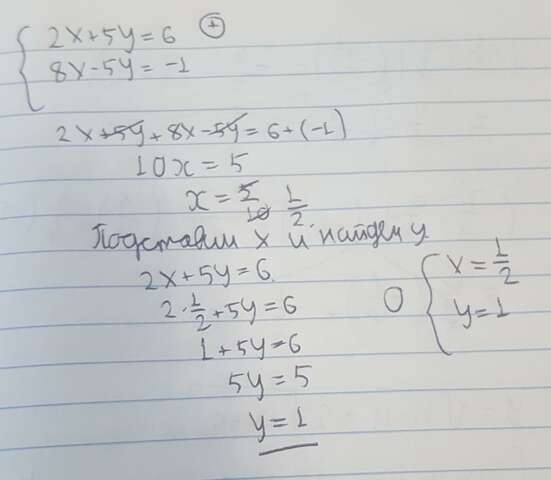 { 2x+5y=6 ⊕
8x-5y=-1
2x+5y+8x-5y=6+(-1)
10x=5
x=5/10 1/2.
Подставим x и найдем y
2x+5y=6.
2·1/2+5y=6
1+5y=6
5y=5
y=1
О { x=1/2
y=1